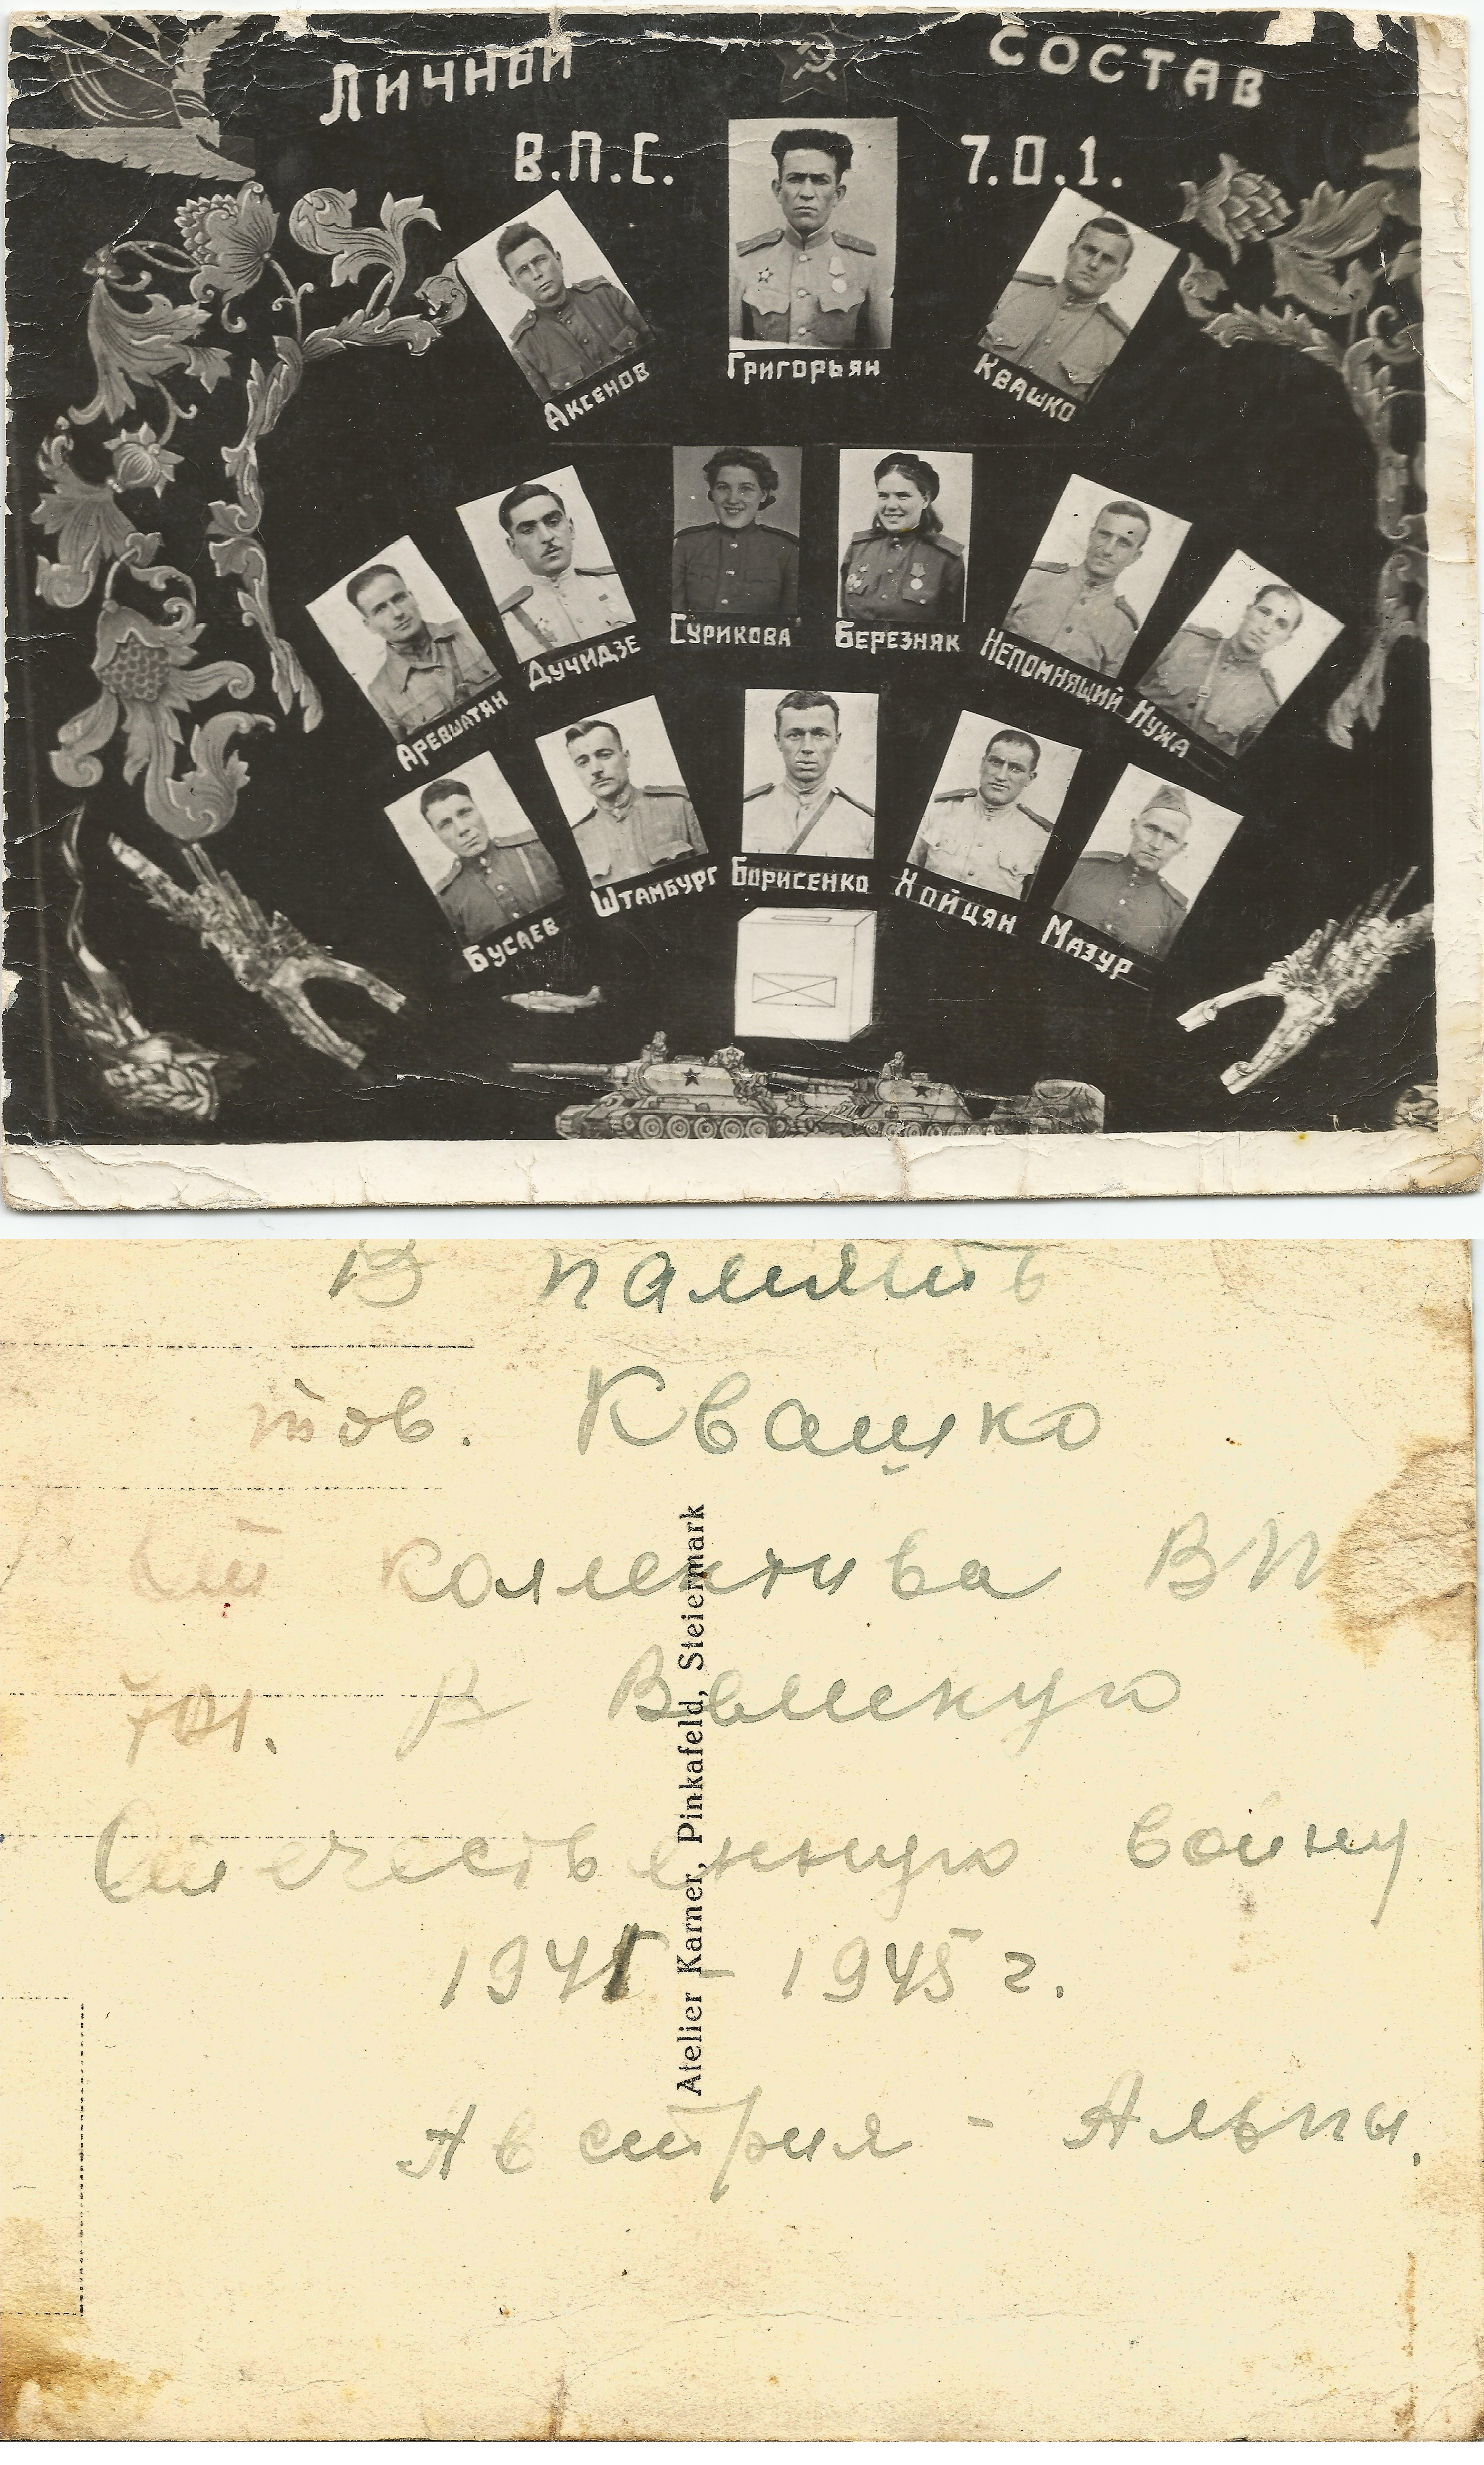 ЛИЧНОЙ СОСТАВ
В.П.С. 7.0.1.
ГРИГОРЬЯН
АКСЕНОВ
КВАШКО
АРЕВШАТЯН
ДУЧИДЗЕ
СУРИКОВА
БЕРЕЗНЯК
НЕПОМНЯЩИЙ
НУЖА
БУСАЕВ
ШТАМБУРГ
БОРИСЕНКО
ХОЙЦЯН
МАЗУР
В память
тов. Квашко
от коллектива ВП
701. В Великую
Отечественную войну
1941 - 1945 г.
Австрия - Альпы.
Atelier Karner, Pinkafeld, Steiermark